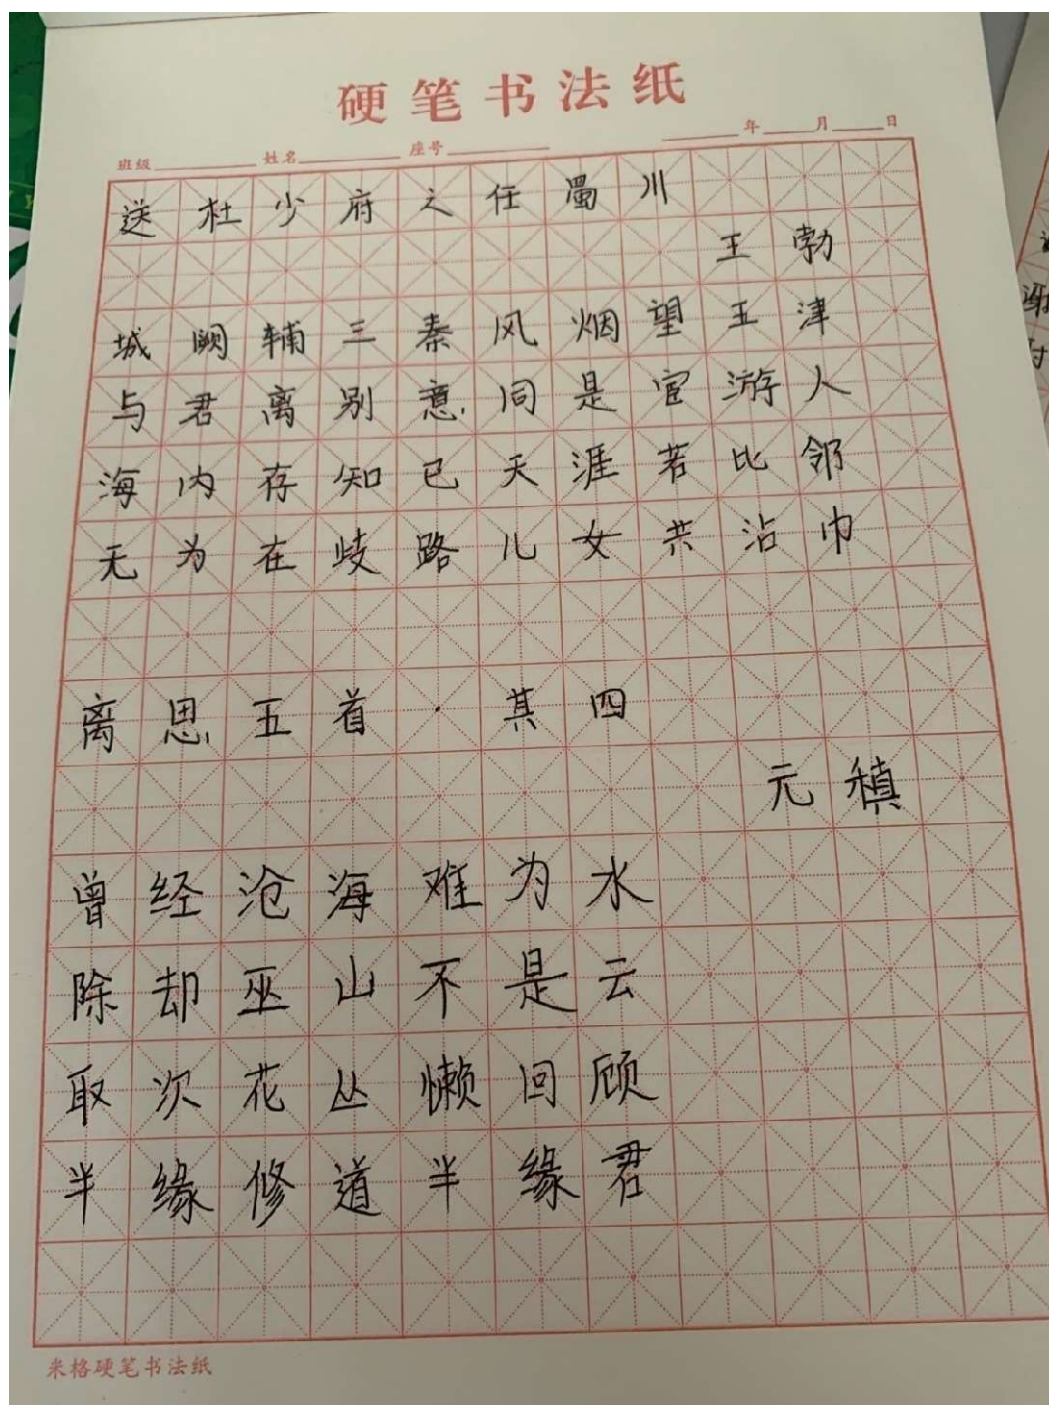 硬笔书法纸
班级 姓名 座号 年 月 日
送杜少府之任蜀川
王勃
城阙辅三秦风烟望五津
与君离别意同是宦游人
海内存知己天涯若比邻
无为在歧路儿女共沾巾
离思五首·其四
元稹
曾经沧海难为水
除却巫山不是云
取次花丛懒回顾
半缘修道半缘君
米格硬笔书法纸